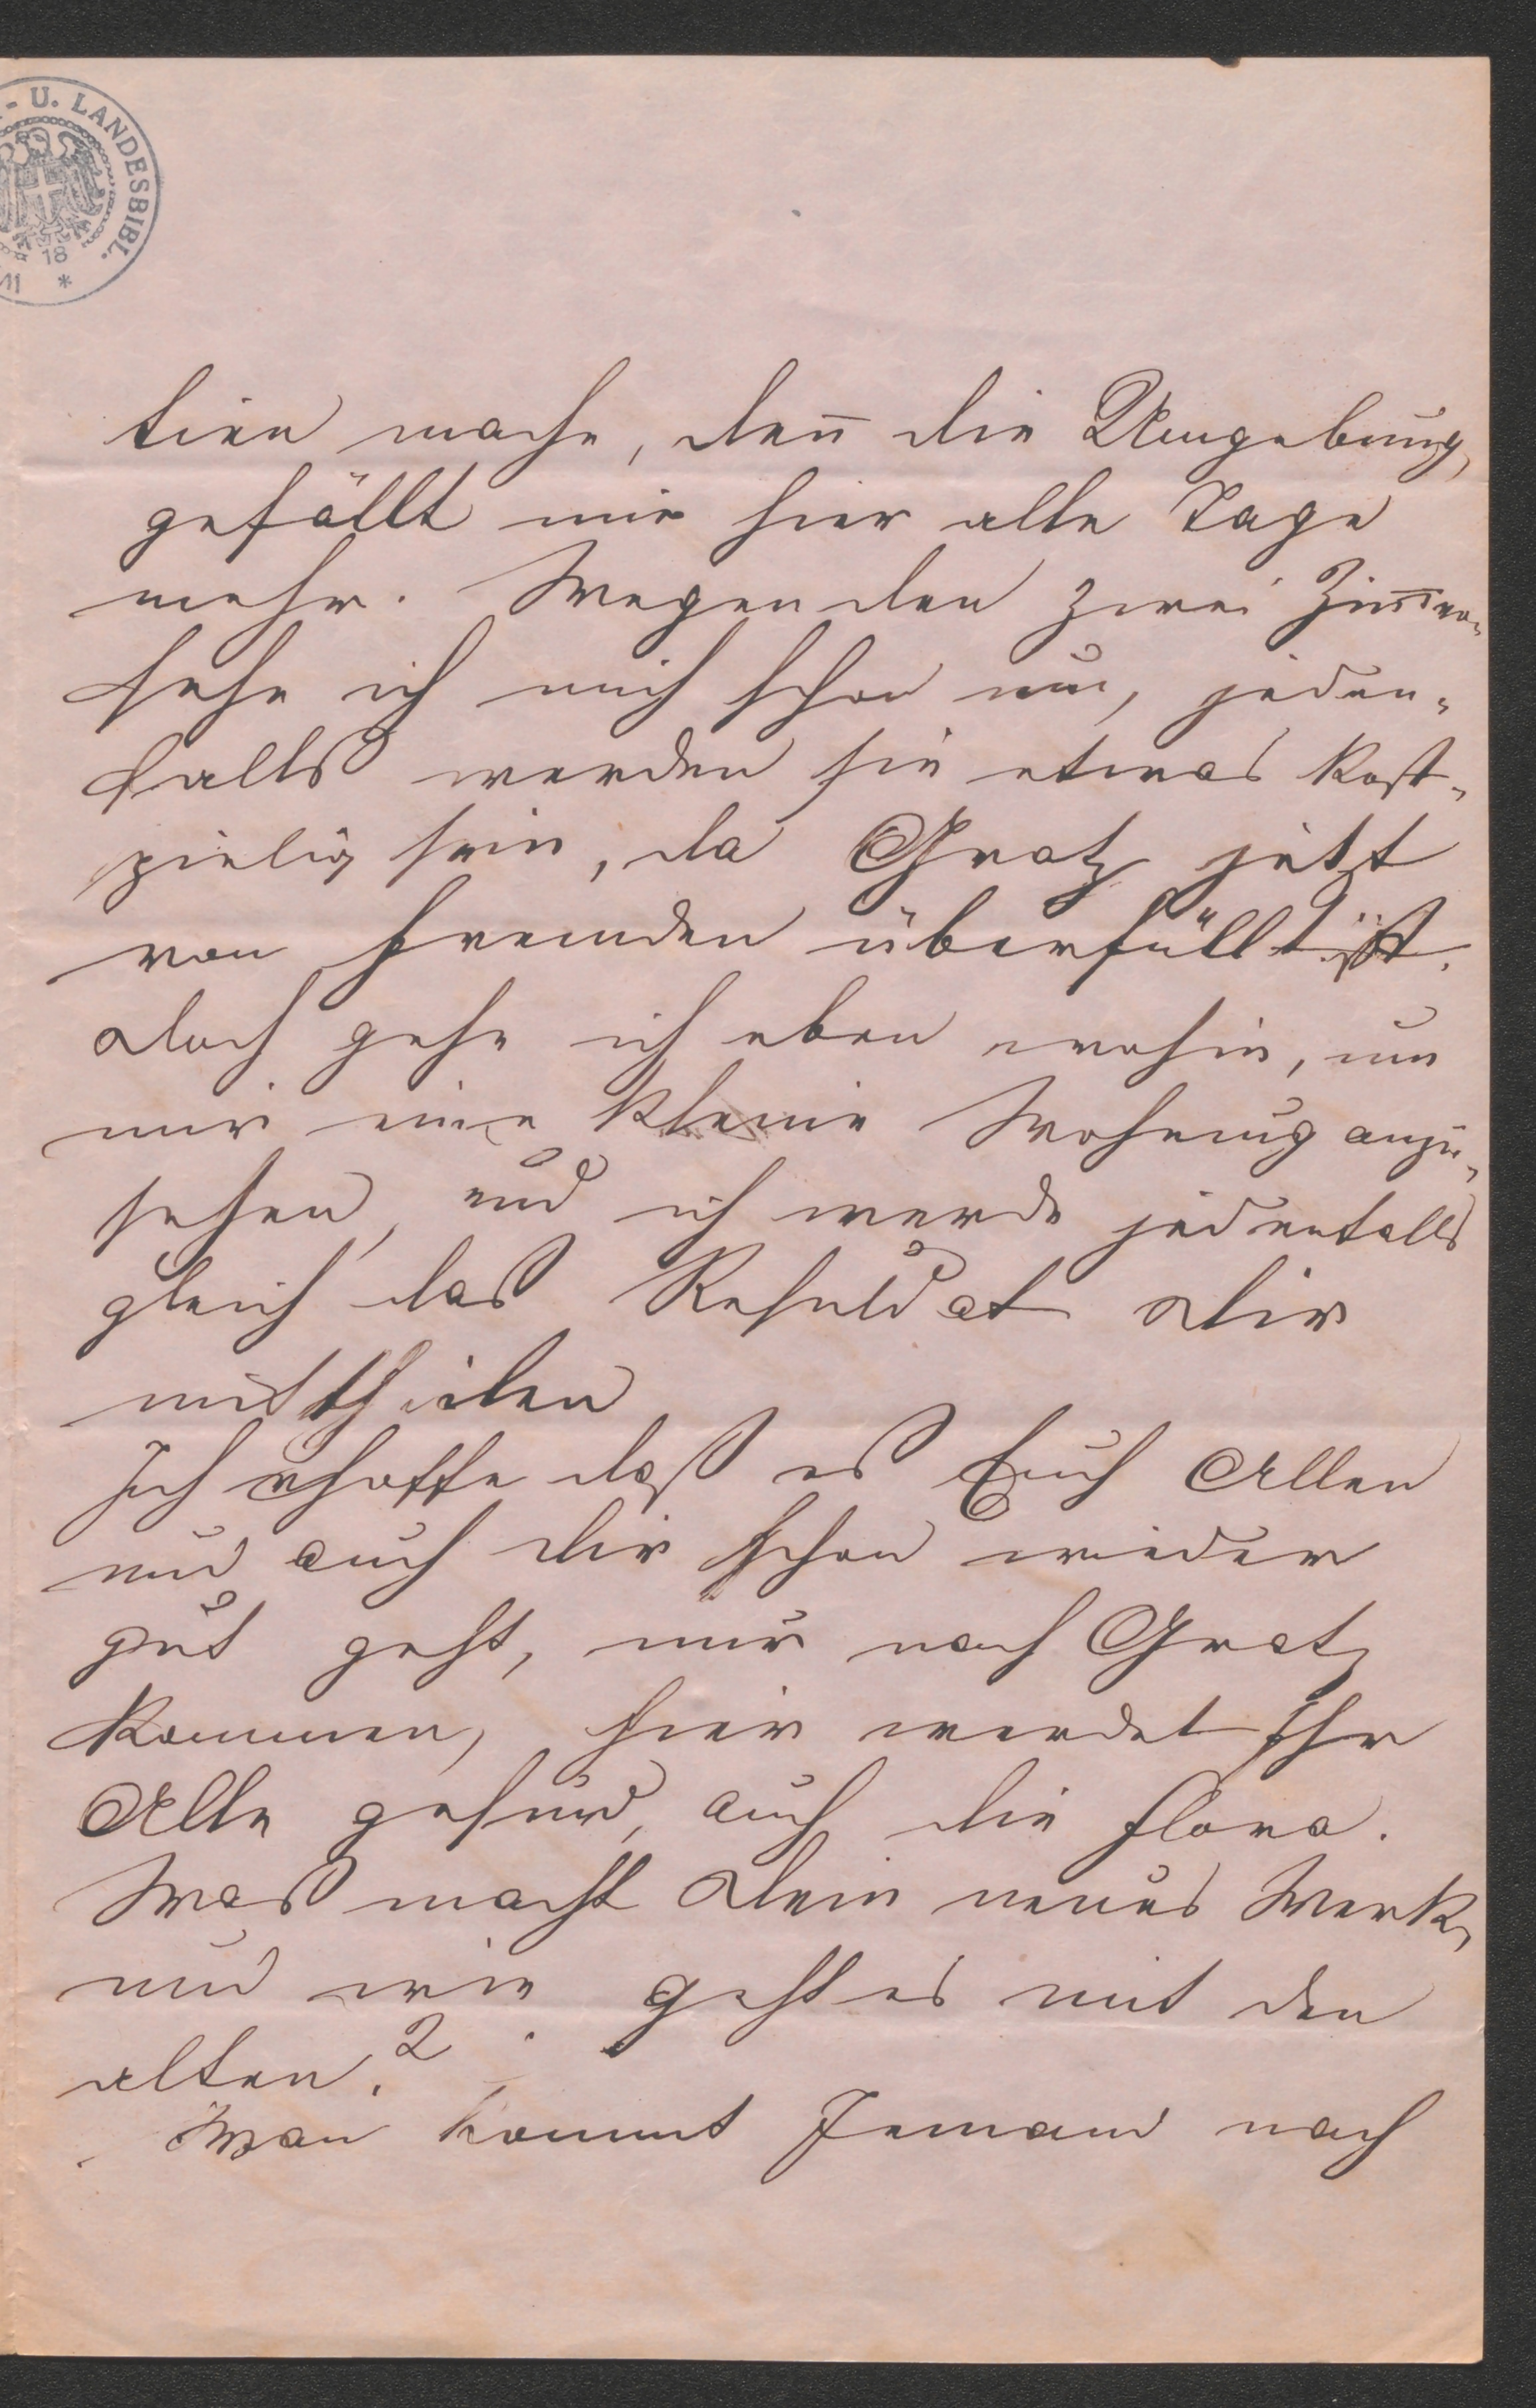 - U. LANDESBIBL.
18
*
tien mache, den̅ die Umgebung
gefällt mir hier alle Tage
mehr. Wegen den zwei Zim̅er
sehe ich mich schon um, jeden-
falls werden sie etwas kost-
spielig sein, da Gratz jetzt
von Fremden überfüllt ist.
Doch gehe ich eben wohin, um
mir eine kleine Wohnung anzu-
sehen, und ich werde jedenfalls
gleich das Resuldat Dir
mittheilen
Ich hoffe daß es Euch Allen
und auch dir schon wieder
gut geht, nur nach Gratz
kommen, hier werdet Ihr
Alle gesund, auch die Flora.
Was macht Dein neues Werk,
und wie geht es mit den
alten?
Wan kommt Jemand nach